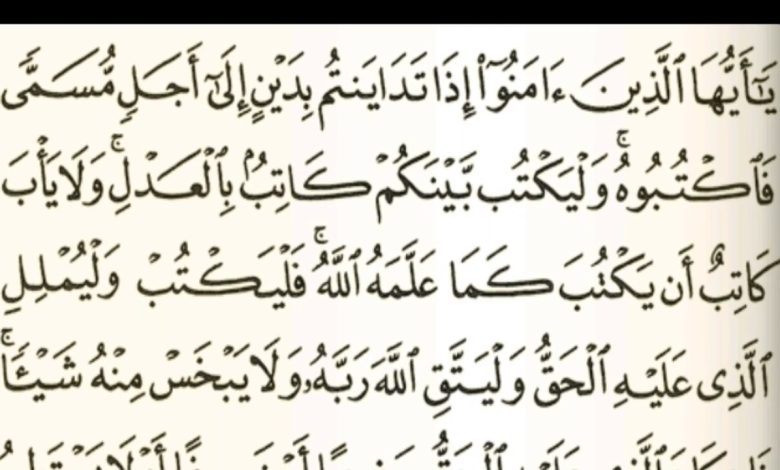 يَٰٓأَيُّهَا ٱلَّذِينَ ءَامَنُوٓا۟ إِذَا تَدَايَنتُم بِدَيْنٍ إِلَىٰٓ أَجَلٍ مُّسَمًّى
فَٱكْتُبُوهُ ۚ وَلْيَكْتُب بَّيْنَكُمْ كَاتِبٌۢ بِٱلْعَدْلِ ۚ وَلَا يَأْبَ
كَاتِبٌ أَن يَكْتُبَ كَمَا عَلَّمَهُ ٱللَّهُ ۚ فَلْيَكْتُبْ وَلْيُمْلِلِ
ٱلَّذِى عَلَيْهِ ٱلْحَقُّ وَلْيَتَّقِ ٱللَّهَ رَبَّهُۥ وَلَا يَبْخَسْ مِنْهُ شَيْـًٔا ۚ